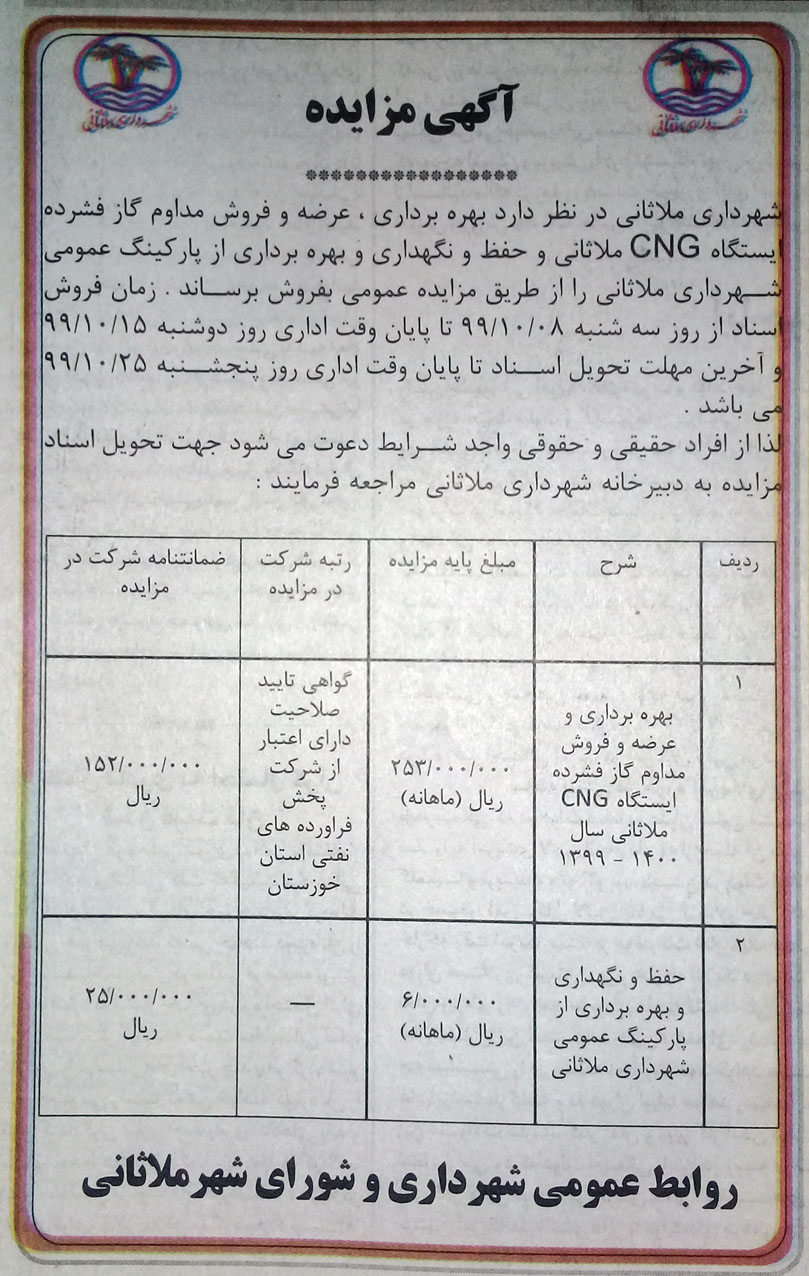 شهرداری ملاثانی
شهرداری ملاثانی
آگهی مزایده
****************
شهرداری ملاثانی در نظر دارد بهره برداری ، عرضه و فروش مداوم گاز فشرده
ایستگاه CNG ملاثانی و حفظ و نگهداری و بهره برداری از پارکینگ عمومی
شهرداری ملاثانی را از طریق مزایده عمومی بفروش برساند . زمان فروش
اسناد از روز سه شنبه ۹۹/۱۰/۰۸ تا پایان وقت اداری روز دوشنبه ۹۹/۱۰/۱۵
و آخرین مهلت تحویل اسناد تا پایان وقت اداری روز پنجشنبه ۹۹/۱۰/۲۵
می باشد .
لذا از افراد حقیقی و حقوقی واجد شرایط دعوت می شود جهت تحویل اسناد
مزایده به دبیرخانه شهرداری ملاثانی مراجعه فرمایند :
ردیف
شرح
مبلغ پایه مزایده
رتبه شرکت
در مزایده
ضمانتنامه شرکت در
مزایده
۱
بهره برداری و
عرضه و فروش
مداوم گاز فشرده
ایستگاه CNG
ملاثانی سال
۱۴۰۰ - ۱۳۹۹
۲۵۳/۰۰۰/۰۰۰
ریال (ماهانه)
گواهی تایید
صلاحیت
دارای اعتبار
از شرکت
پخش
فراورده های
نفتی استان
خوزستان
۱۵۲/۰۰۰/۰۰۰
ریال
۲
حفظ و نگهداری
و بهره برداری از
پارکینگ عمومی
شهرداری ملاثانی
۶/۰۰۰/۰۰۰
ریال (ماهانه)
—
۲۵/۰۰۰/۰۰۰
ریال
روابط عمومی شهرداری و شورای شهر ملاثانی